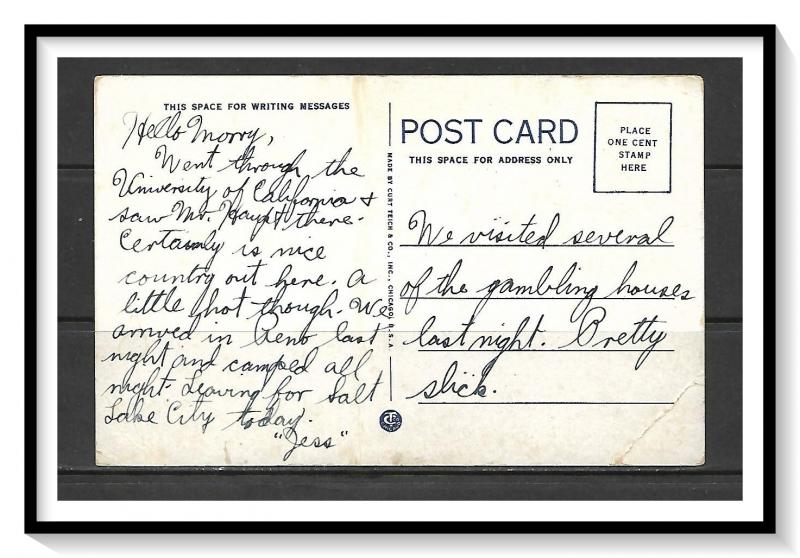 THIS SPACE FOR WRITING MESSAGES
Hello Morry,
Went through the
University of California &
saw Mr. Haupt there.
Certainly is nice
country out here. A
little hot though. We
arrived in Reno last
night and camped all
night. Leaving for Salt
Lake City today.
"Jess"
MADE BY CURT TEICH & CO., INC., CHICAGO, U.S.A.
POST CARD
THIS SPACE FOR ADDRESS ONLY
PLACE
ONE CENT
STAMP
HERE
We visited several
of the gambling houses
last night. Pretty
slick.